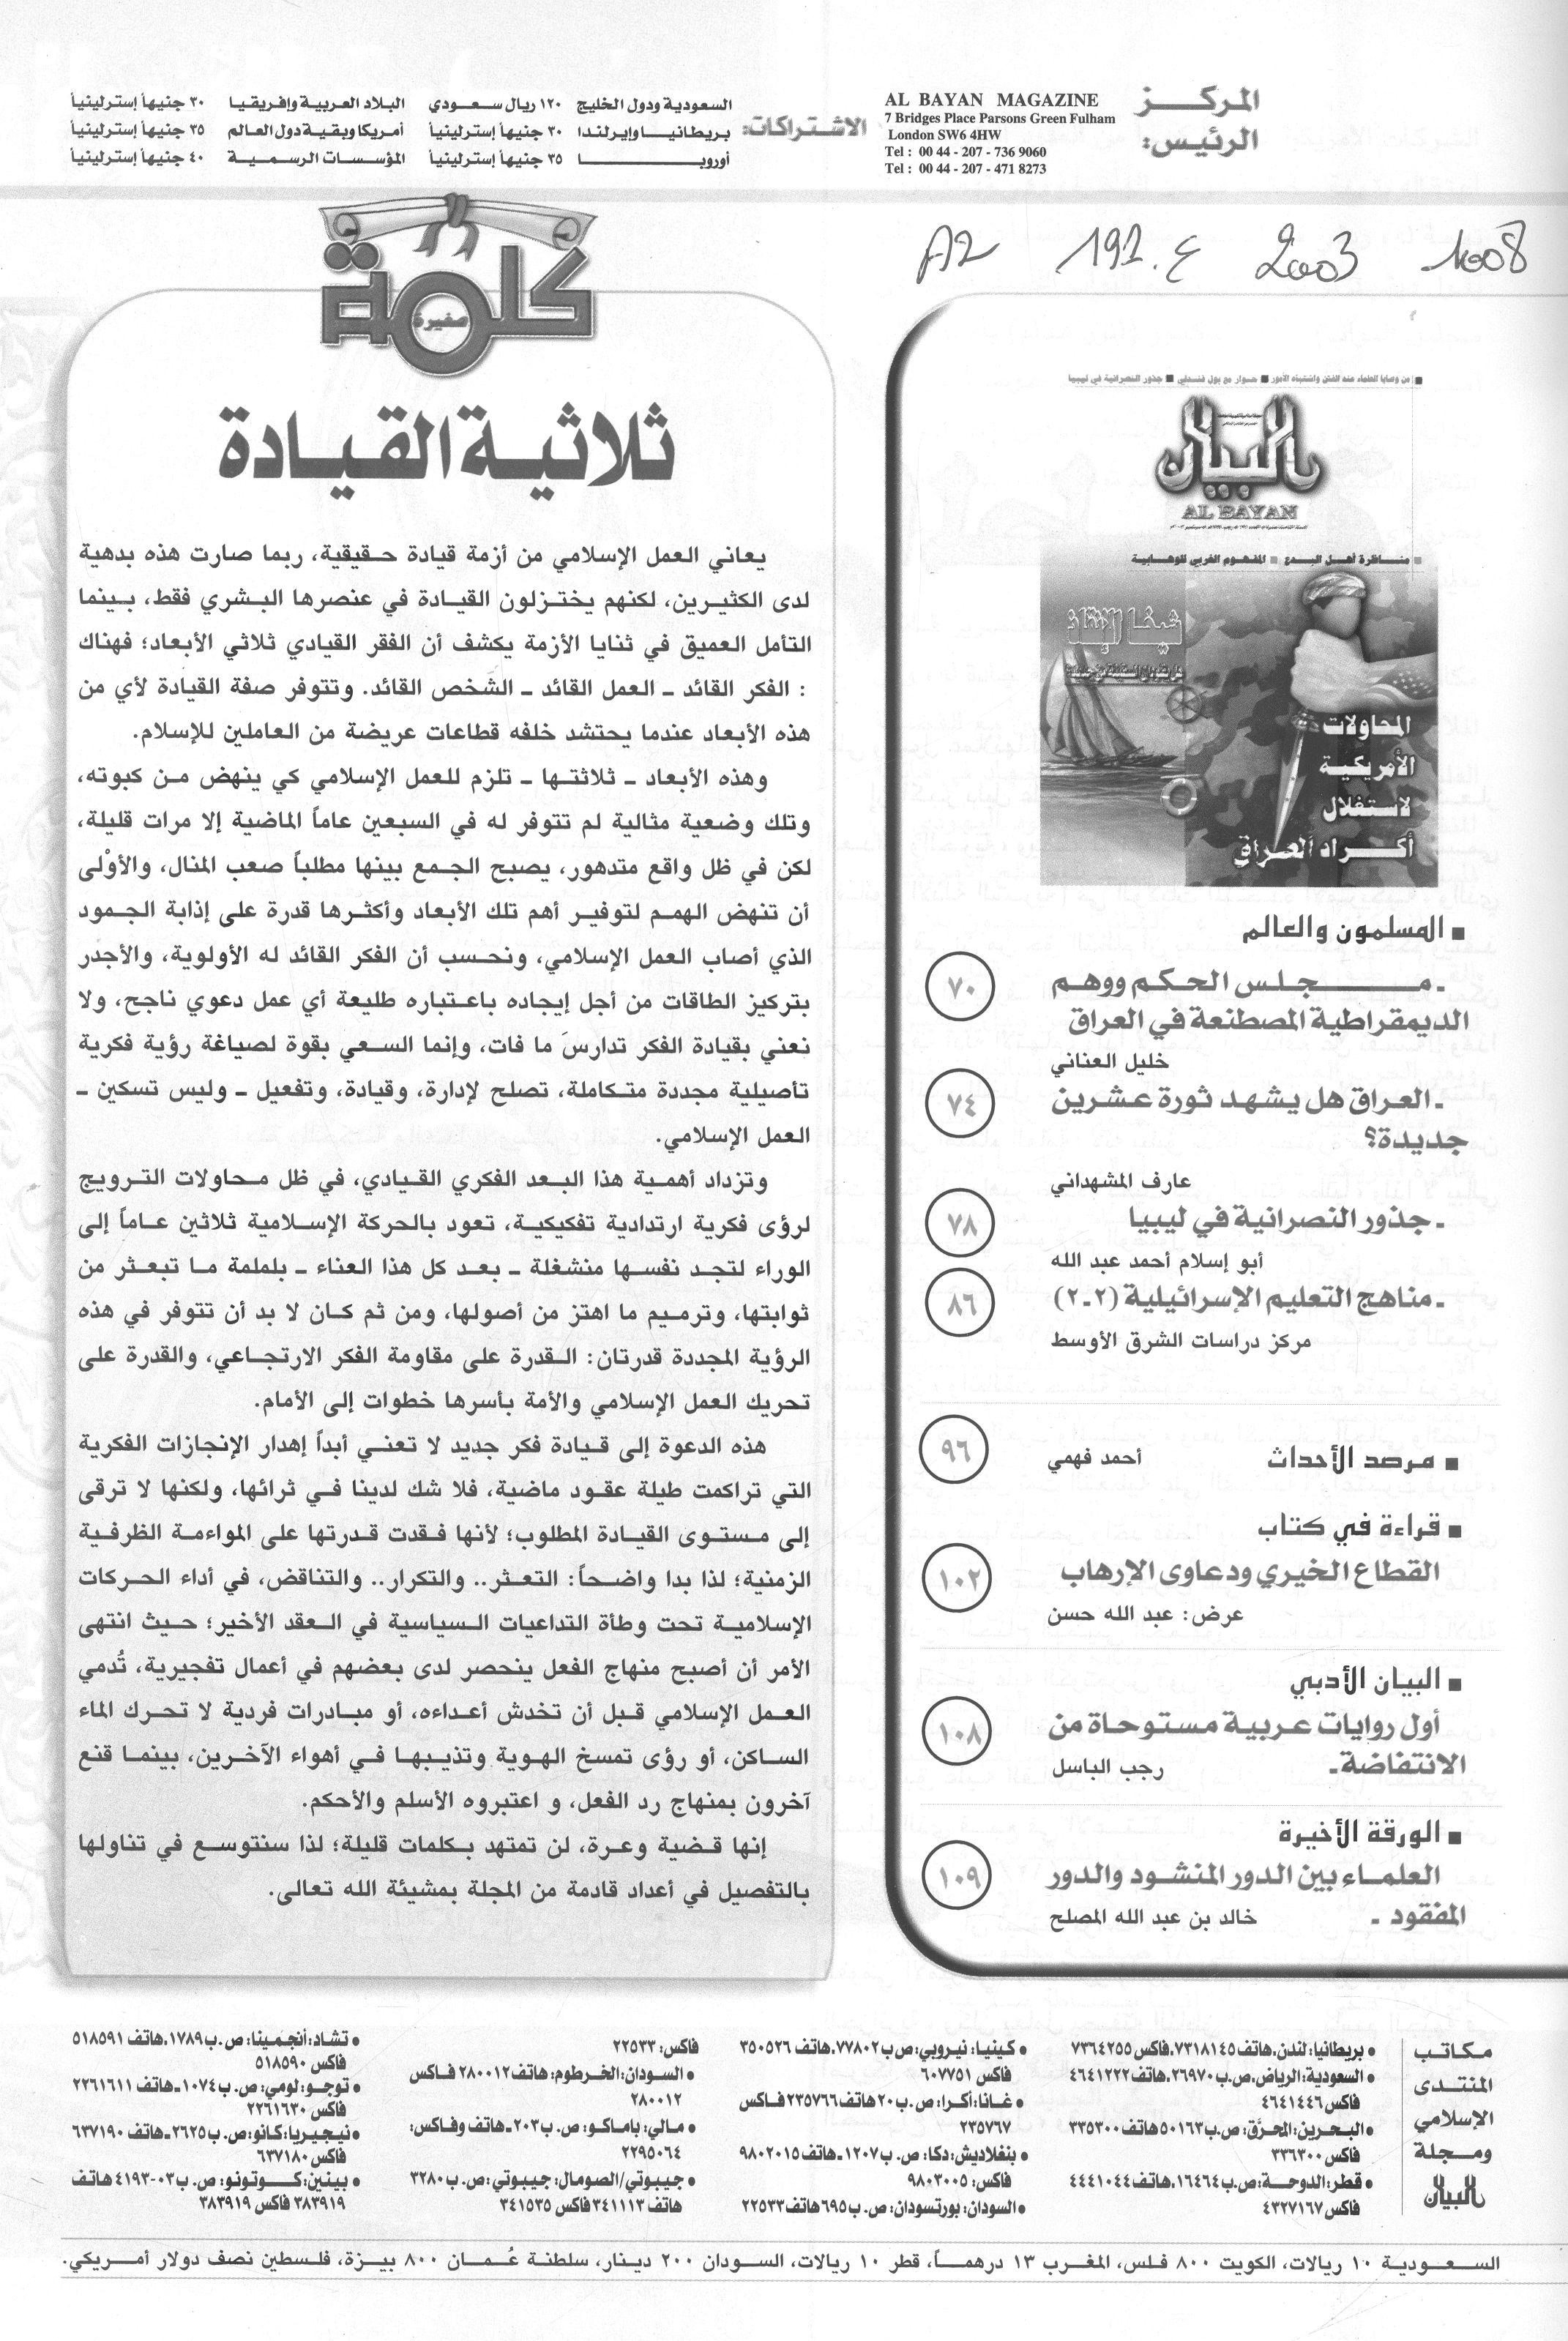 المركــز
الرئيس:
AL BAYAN MAGAZINE
7 Bridges Place Parsons Green Fulham
London SW6 4HW
Tel : 00 44 - 207 - 736 9060
Tel : 00 44 - 207 - 471 8273
الاشتراكات:
السعودية ودول الخليج ١٢٠ ريال سعودي
بريطانيا وإيرلندا ٣٠ جنيهاً إسترلينياً
أوروبا ٣٥ جنيهاً إسترلينياً
البلاد العربية وإفريقيا ٣٠ جنيهاً إسترلينياً
أمريكا وبقية دول العالم ٣٥ جنيهاً إسترلينياً
المؤسسات الرسمية ٤٠ جنيهاً إسترلينياً
A2 191.ع 2003 1008
■ من وصايا العلماء عند الفتن واشتباه الأمور ■ حوار مع بول فندلي ■ جذور النصرانية في ليبيا
البيان
AL BAYAN
■ مناظرة أهل البدع ■ المفهوم الغربي للوهابية
شيخا الإنقاذ
المحاولات
الأمريكية
لاستغلال
أكراد العراق
■ المسلمون والعالم
ـ مجلس الحكم ووهم
الديمقراطية المصطنعة في العراق
٧٠
خليل العناني
ـ العراق هل يشهد ثورة عشرين
جديدة؟
٧٤
عارف المشهداني
ـ جذور النصرانية في ليبيا
٧٨
أبو إسلام أحمد عبد الله
ـ مناهج التعليم الإسرائيلية (٢ـ٢)
٨٦
مركز دراسات الشرق الأوسط
■ مرصد الأحداث أحمد فهمي ٩٦
■ قراءة في كتاب
القطاع الخيري ودعاوى الإرهاب
١٠٢
عرض: عبد الله حسن
■ البيان الأدبي
أول روايات عربية مستوحاة من
الانتفاضة ـ رجب الباسل
١٠٨
■ الورقة الأخيرة
العلماء بين الدور المنشود والدور
المفقود ـ خالد بن عبد الله المصلح
١٠٩
كلمة
صغيرة
ثلاثية القيادة
يعاني العمل الإسلامي من أزمة قيادة حقيقية، ربما صارت هذه بدهية
لدى الكثيرين، لكنهم يختزلون القيادة في عنصرها البشري فقط، بينما
التأمل العميق في ثنايا الأزمة يكشف أن الفقر القيادي ثلاثي الأبعاد؛ فهناك
: الفكر القائد ـ العمل القائد ـ الشخص القائد. وتتوفر صفة القيادة لأي من
هذه الأبعاد عندما يحتشد خلفه قطاعات عريضة من العاملين للإسلام.
وهذه الأبعاد ـ ثلاثتها ـ تلزم للعمل الإسلامي كي ينهض من كبوته،
وتلك وضعية مثالية لم تتوفر له في السبعين عاماً الماضية إلا مرات قليلة،
لكن في ظل واقع متدهور، يصبح الجمع بينها مطلباً صعب المنال، والأوْلى
أن تنهض الهمم لتوفير أهم تلك الأبعاد وأكثرها قدرة على إذابة الجمود
الذي أصاب العمل الإسلامي، ونحسب أن الفكر القائد له الأولوية، والأجدر
بتركيز الطاقات من أجل إيجاده باعتباره طليعة أي عمل دعوي ناجح، ولا
نعني بقيادة الفكر تدارسَ ما فات، وإنما السعي بقوة لصياغة رؤية فكرية
تأصيلية مجددة متكاملة، تصلح لإدارة، وقيادة، وتفعيل ـ وليس تسكين ـ
العمل الإسلامي.
وتزداد أهمية هذا البعد الفكري القيادي، في ظل محاولات الترويج
لرؤى فكرية ارتدادية تفكيكية، تعود بالحركة الإسلامية ثلاثين عاماً إلى
الوراء لتجد نفسها منشغلة ـ بعد كل هذا العناء ـ بلملمة ما تبعثر من
ثوابتها، وترميم ما اهتز من أصولها، ومن ثم كان لا بد أن تتوفر في هذه
الرؤية المجددة قدرتان: القدرة على مقاومة الفكر الارتجاعي، والقدرة على
تحريك العمل الإسلامي والأمة بأسرها خطوات إلى الأمام.
هذه الدعوة إلى قيادة فكر جديد لا تعني أبداً إهدار الإنجازات الفكرية
التي تراكمت طيلة عقود ماضية، فلا شك لدينا في ثرائها، ولكنها لا ترقى
إلى مستوى القيادة المطلوب؛ لأنها فقدت قدرتها على المواءمة الظرفية
الزمنية؛ لذا بدا واضحاً: التعثر.. والتكرار.. والتناقض، في أداء الحركات
الإسلامية تحت وطأة التداعيات السياسية في العقد الأخير؛ حيث انتهى
الأمر أن أصبح منهاج الفعل ينحصر لدى بعضهم في أعمال تفجيرية، تُدمي
العمل الإسلامي قبل أن تخدش أعداءه، أو مبادرات فردية لا تحرك الماء
الساكن، أو رؤى تمسخ الهوية وتذيبها في أهواء الآخرين، بينما قنع
آخرون بمنهاج رد الفعل، و اعتبروه الأسلم والأحكم.
إنها قضية وعرة، لن تمتهد بكلمات قليلة؛ لذا سنتوسع في تناولها
بالتفصيل في أعداد قادمة من المجلة بمشيئة الله تعالى.
مكاتب
المنتدى
الإسلامي
ومجلة
البيان
● بريطانيا: لندن، هاتف ٧٣١٨١٤٥، فاكس ٧٣٦٤٢٥٥
● السعودية: الرياض، ص.ب ٢٦٩٧٠، هاتف ٤٦٤١٢٢٢
فاكس ٤٦٤١٤٤٦
● البحرين: المحرّق: ص.ب ٥٠١٦٣ هاتف ٣٣٥٣٠٠
فاكس ٣٣٦٣٠٠
● قطر: الدوحة: ص.ب ١٦٤٦٤، هاتف ٤٤٤١٠٤٤
فاكس ٤٣٢٧١٦٧
● كينيا: نيروبي: ص ب ٧٧٨٠٢، هاتف ٣٥٠٥٢٦
فاكس ٦٠٧٧٥١
● غانا: أكرا: ص.ب ٢٠ هاتف ٢٣٥٧٦٦ فاكس
٢٣٥٧٦٧
● بنغلاديش: دكا: ص.ب ١٢٠٧ ـ هاتف ٩٨٠٢٠١٥
فاكس: ٩٨٠٣٠٠٥
● السودان: بورتسودان: ص.ب ٦٩٥ هاتف ٢٢٥٣٣
فاكس: ٢٢٥٣٣
● السودان: الخرطوم: هاتف ٢٨٠٠١٢ فاكس
٢٨٠٠١٢
● مالي: باماكو: ص. ب ٢٠٣ ـ هاتف وفاكس:
٢٢٩٥٠٦٤
● جيبوتي/الصومال: جيبوتي: ص.ب ٣٢٨٠
هاتف ٣٤١١١٣ فاكس ٣٤١٥٣٥
● تشاد: أنجمينا: ص.ب ١٧٨٩، هاتف ٥١٨٥٩١
فاكس ٥١٨٥٩٠
● توجو: لومي: ص. ب ١٠٧٤ ـ هاتف ٢٢٦١٦١١
فاكس ٢٢٦١٦٣٠
● نيجيريا: كانو: ص.ب ٢٦٢٥ ـ هاتف ٦٣٧١٩٠
فاكس ٦٣٧١٨٠
● بينين: كوتونو: ص. ب ٠٣-٤١٩٣ هاتف
٣٨٣٩١٩ فاكس ٣٨٣٩١٩
السعودية ١٠ ريالات، الكويت ٨٠٠ فلس، المغرب ١٣ درهماً، قطر ١٠ ريالات، السودان ٢٠٠ دينار، سلطنة عُمان ٨٠٠ بيزة، فلسطين نصف دولار أمريكي.